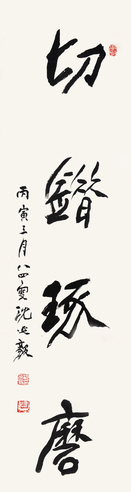 切鐕琢磨
丙寅三月八四叟沈延毅